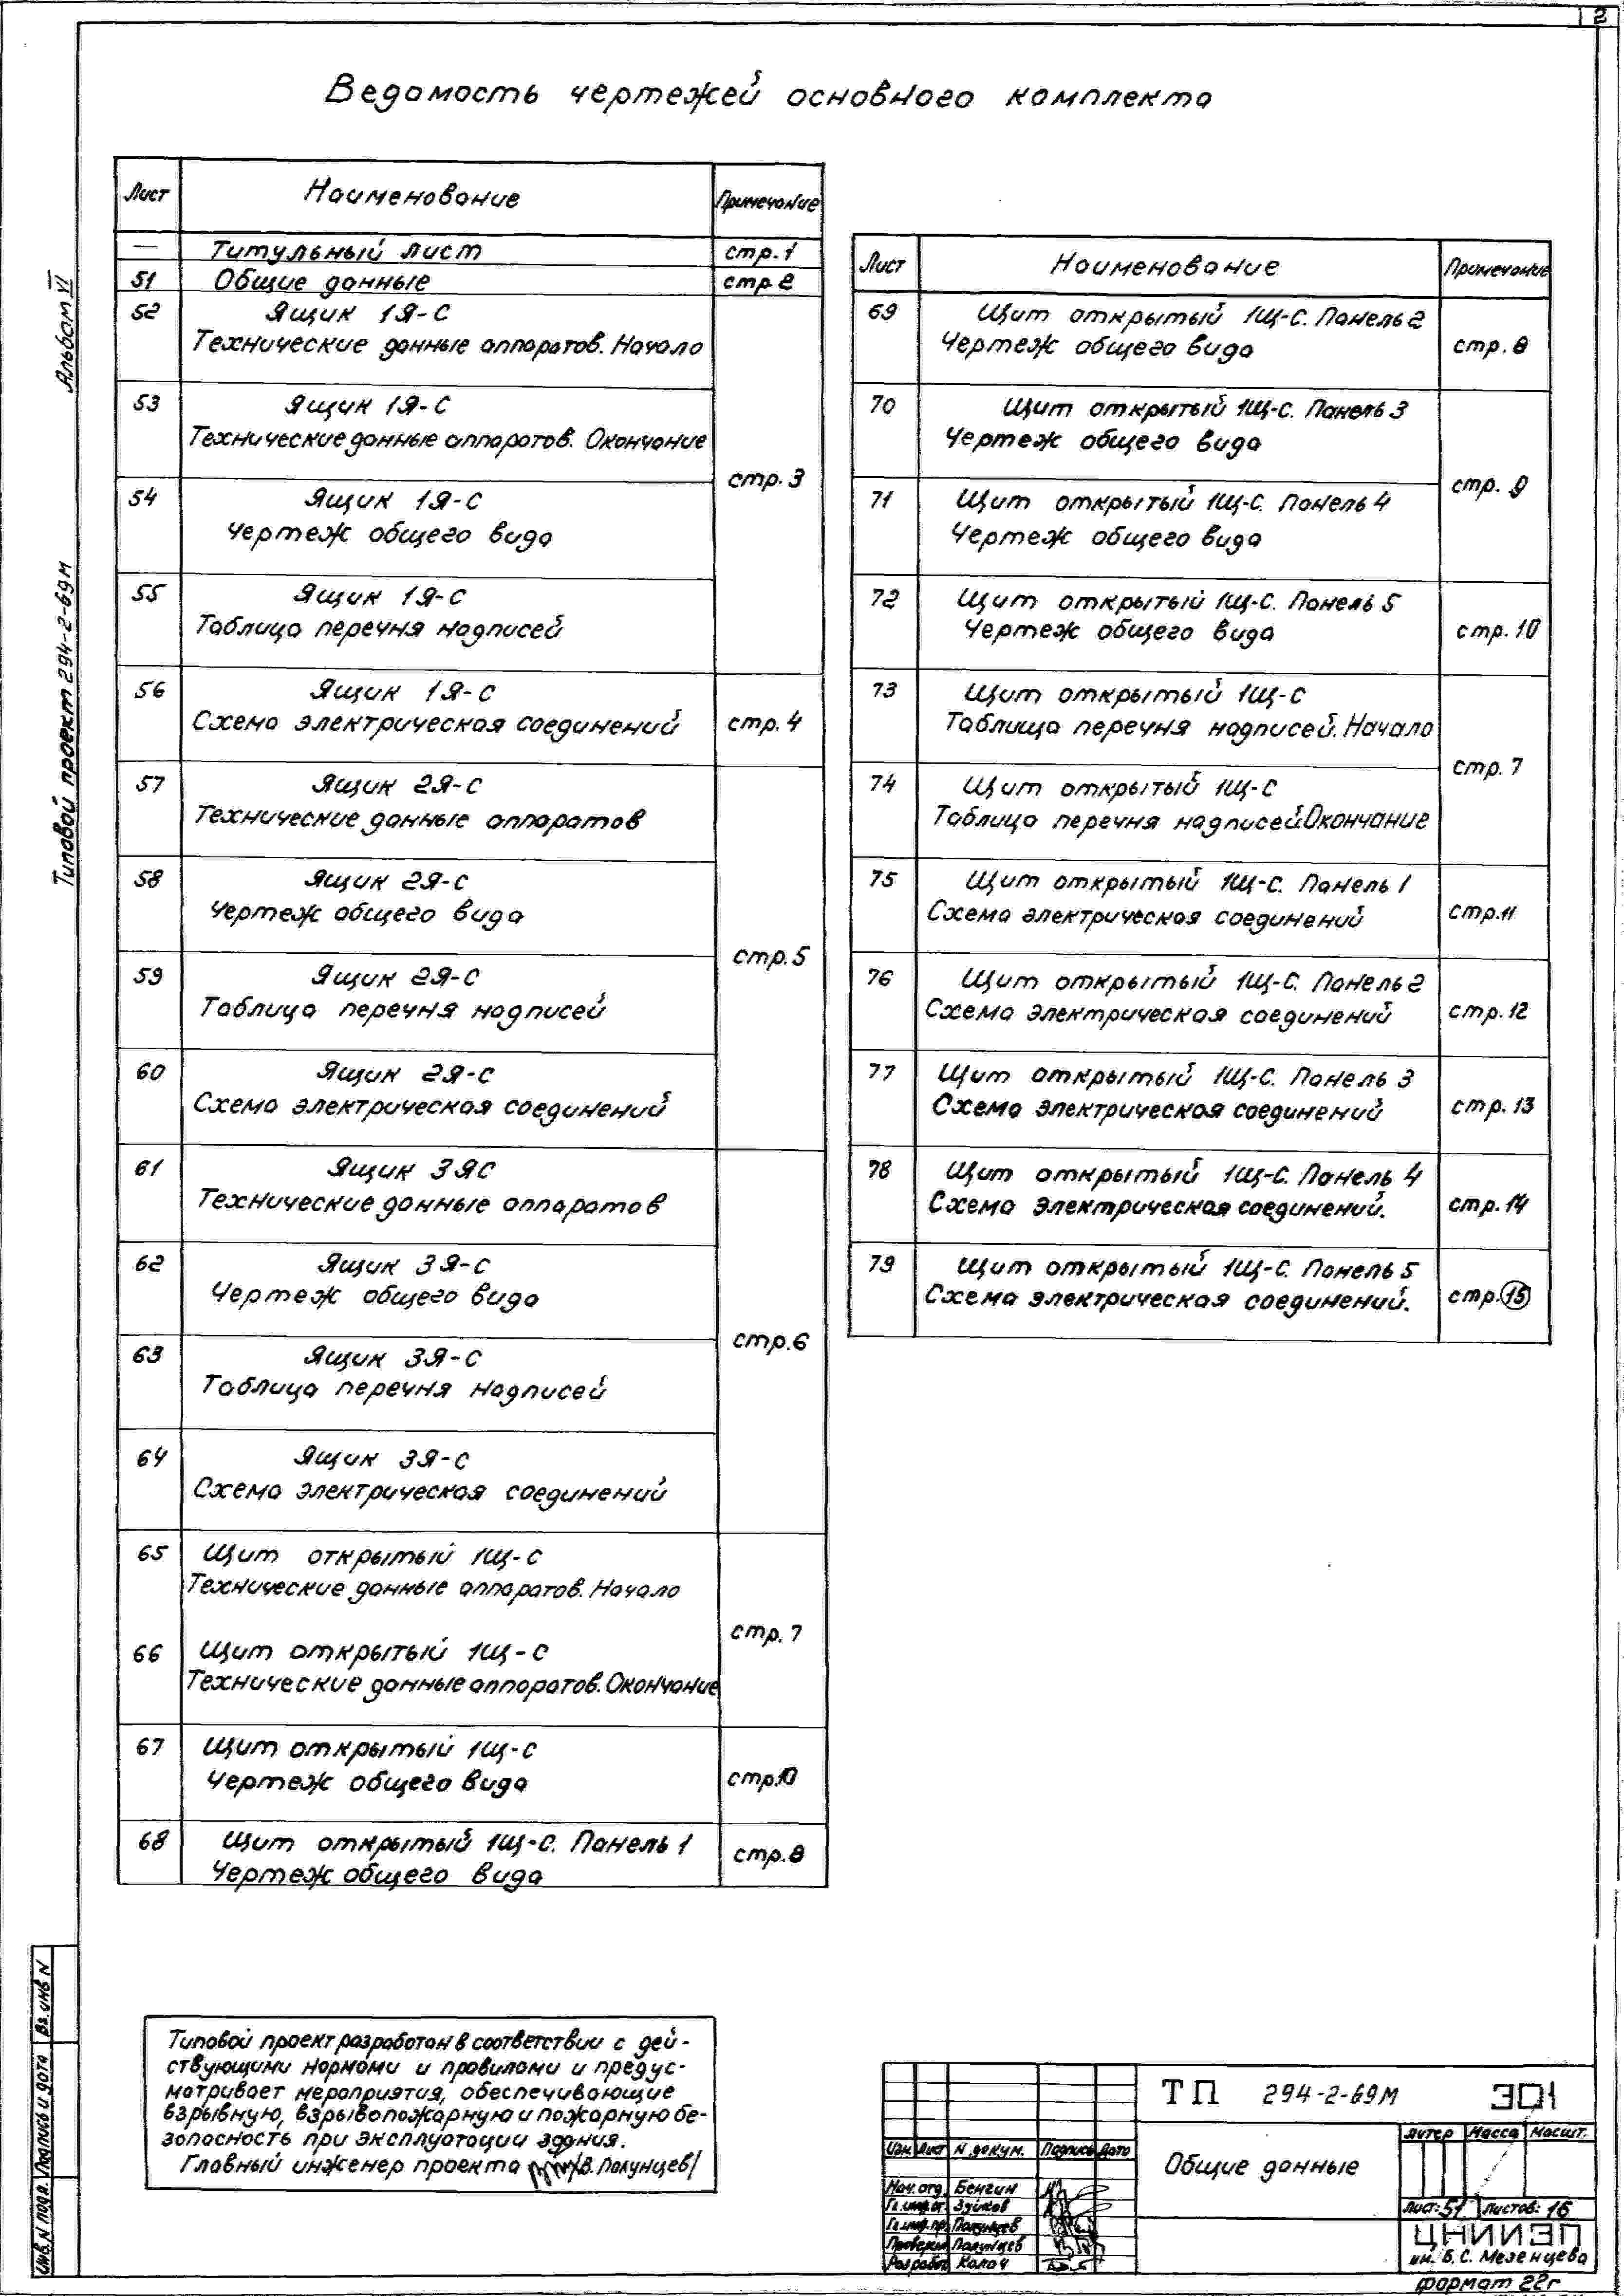 2
Ведомость чертежей основного комплекта
Лист Наименование Примечание
— Титульный лист стр.1
51 Общие данные стр 2
52 Ящик 1Я-С
Технические данные аппаратов. Начало
53 Ящик 1Я-С
Технические данные аппаратов. Окончание
стр.3
54 Ящик 1Я-С
Чертеж общего вида
55 Ящик 1Я-С
Таблица перечня надписей
56 Ящик 1Я-С
Схема электрическая соединений стр.4
57 Ящик 2Я-С
Технические данные аппаратов
58 Ящик 2Я-С
Чертеж общего вида
стр.5
59 Ящик 2Я-С
Таблица перечня надписей
60 Ящик 2Я-С
Схема электрическая соединений
61 Ящик 3ЯС
Технические данные аппаратов
62 Ящик 3Я-С
Чертеж общего вида
стр.6
63 Ящик 3Я-С
Таблица перечня надписей
64 Ящик 3Я-С
Схема электрическая соединений
65 Щит открытый 1Щ-С
Технические данные аппаратов. Начало
стр. 7
66 Щит открытый 1Щ-С
Технические данные аппаратов. Окончание
67 Щит открытый 1Щ-С
Чертеж общего вида стр.10
68 Щит открытый 1Щ-С. Панель 1
Чертеж общего вида стр.8
Лист Наименование Примечание
69 Щит открытый 1Щ-С. Панель 2
Чертеж общего вида стр. 8
70 Щит открытый 1Щ-С. Панель 3
Чертеж общего вида
стр. 9
71 Щит открытый 1Щ-С. Панель 4
Чертеж общего вида
72 Щит открытый 1Щ-С. Панель 5
Чертеж общего вида стр. 10
73 Щит открытый 1Щ-С
Таблица перечня надписей. Начало
стр. 7
74 Щит открытый 1Щ-С
Таблица перечня надписей.Окончание
75 Щит открытый 1Щ-С. Панель 1
Схема электрическая соединений стр.11
76 Щит открытый 1Щ-С. Панель 2
Схема электрическая соединений стр.12
77 Щит открытый 1Щ-С. Панель 3
Схема электрическая соединений стр. 13
78 Щит открытый 1Щ-С. Панель 4
Схема электрическая соединений. стр. 14
79 Щит открытый 1Щ-С. Панель 5
Схема электрическая соединений. стр. 15
Альбом VI
Типовой проект 294-2-69М
Вз. инв N
Подпись и дата
Инв. N подл.
Типовой проект разработан в соответствии с дей-
ствующими нормами и правилами и предус-
матривает мероприятия, обеспечивающие
взрывную, взрывопожарную и пожарную бе-
зопасность при эксплуатации здания.
Главный инженер проекта /В. Полунцев/
ТП 294-2-69М ЭО1
Изм. Лист N докум. Подпись Дата
Нач. отд. Бенгин
Гл. инж. от. Зуйков
Гл. инж. пр. Полунцев
Проверил Полунцев
Разработ. Калач
Общие данные
Литер Масса Масшт.
Лист: 51 Листов: 16
ЦНИИЭП
им. Б.С. Мезенцева
формат 22г